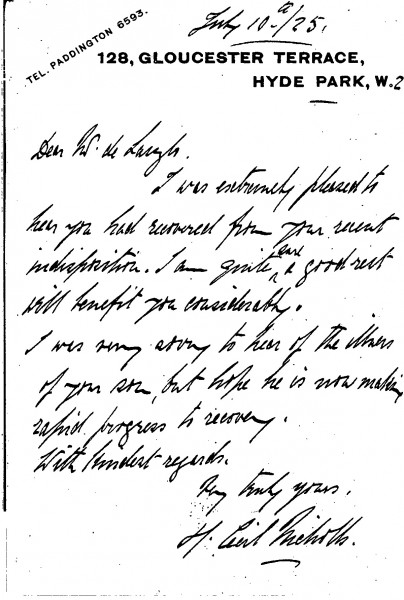 TEL. PADDINGTON 6593.
July 10th/25.
128, GLOUCESTER TERRACE,
HYDE PARK, W.2
Dear Mr de Laszlo.
I was extremely pleased to
hear you had recovered from your recent
indisposition. I am quite sure a good rest
will benefit you considerably.
I was very sorry to hear of the illness
of your son, but hope he is now making
rapid progress to recovery.
With kindest regards.
Very truly yours,
H. Cecil Nicholls.